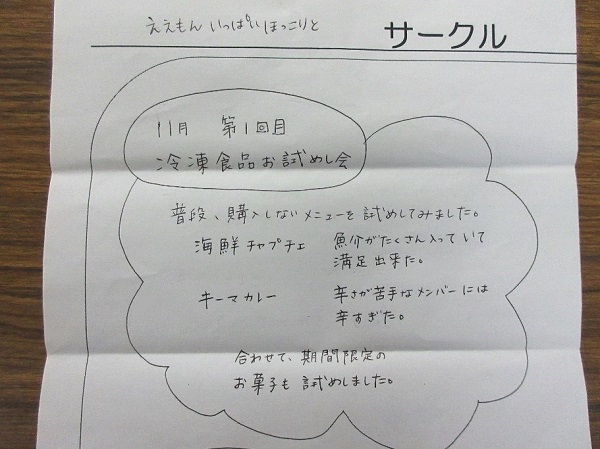 ええもん いっぱい ほっこりと
サークル
11月 第1回目
冷凍食品お試めし会
普段、購入しないメニューを試めしてみました。
海鮮チャプチェ 魚介がたくさん入っていて
満足出来た。
キーマカレー 辛さが苦手なメンバーには
辛すぎた。
合わせて、期間限定の
お菓子も試めしました。